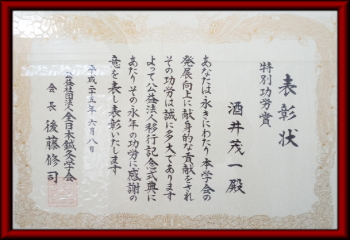 表彰状
特別功労賞
酒井茂一殿
あなたは永きにわたり本学会の
発展向上に献身的な貢献をされ
その功労は誠に多大であります
よって公益法人移行記念式典に
あたりその永年の功労に感謝の
意を表し表彰いたします
平成二十五年六月八日
公益社団法人全日本鍼灸学会
会長 後藤修司